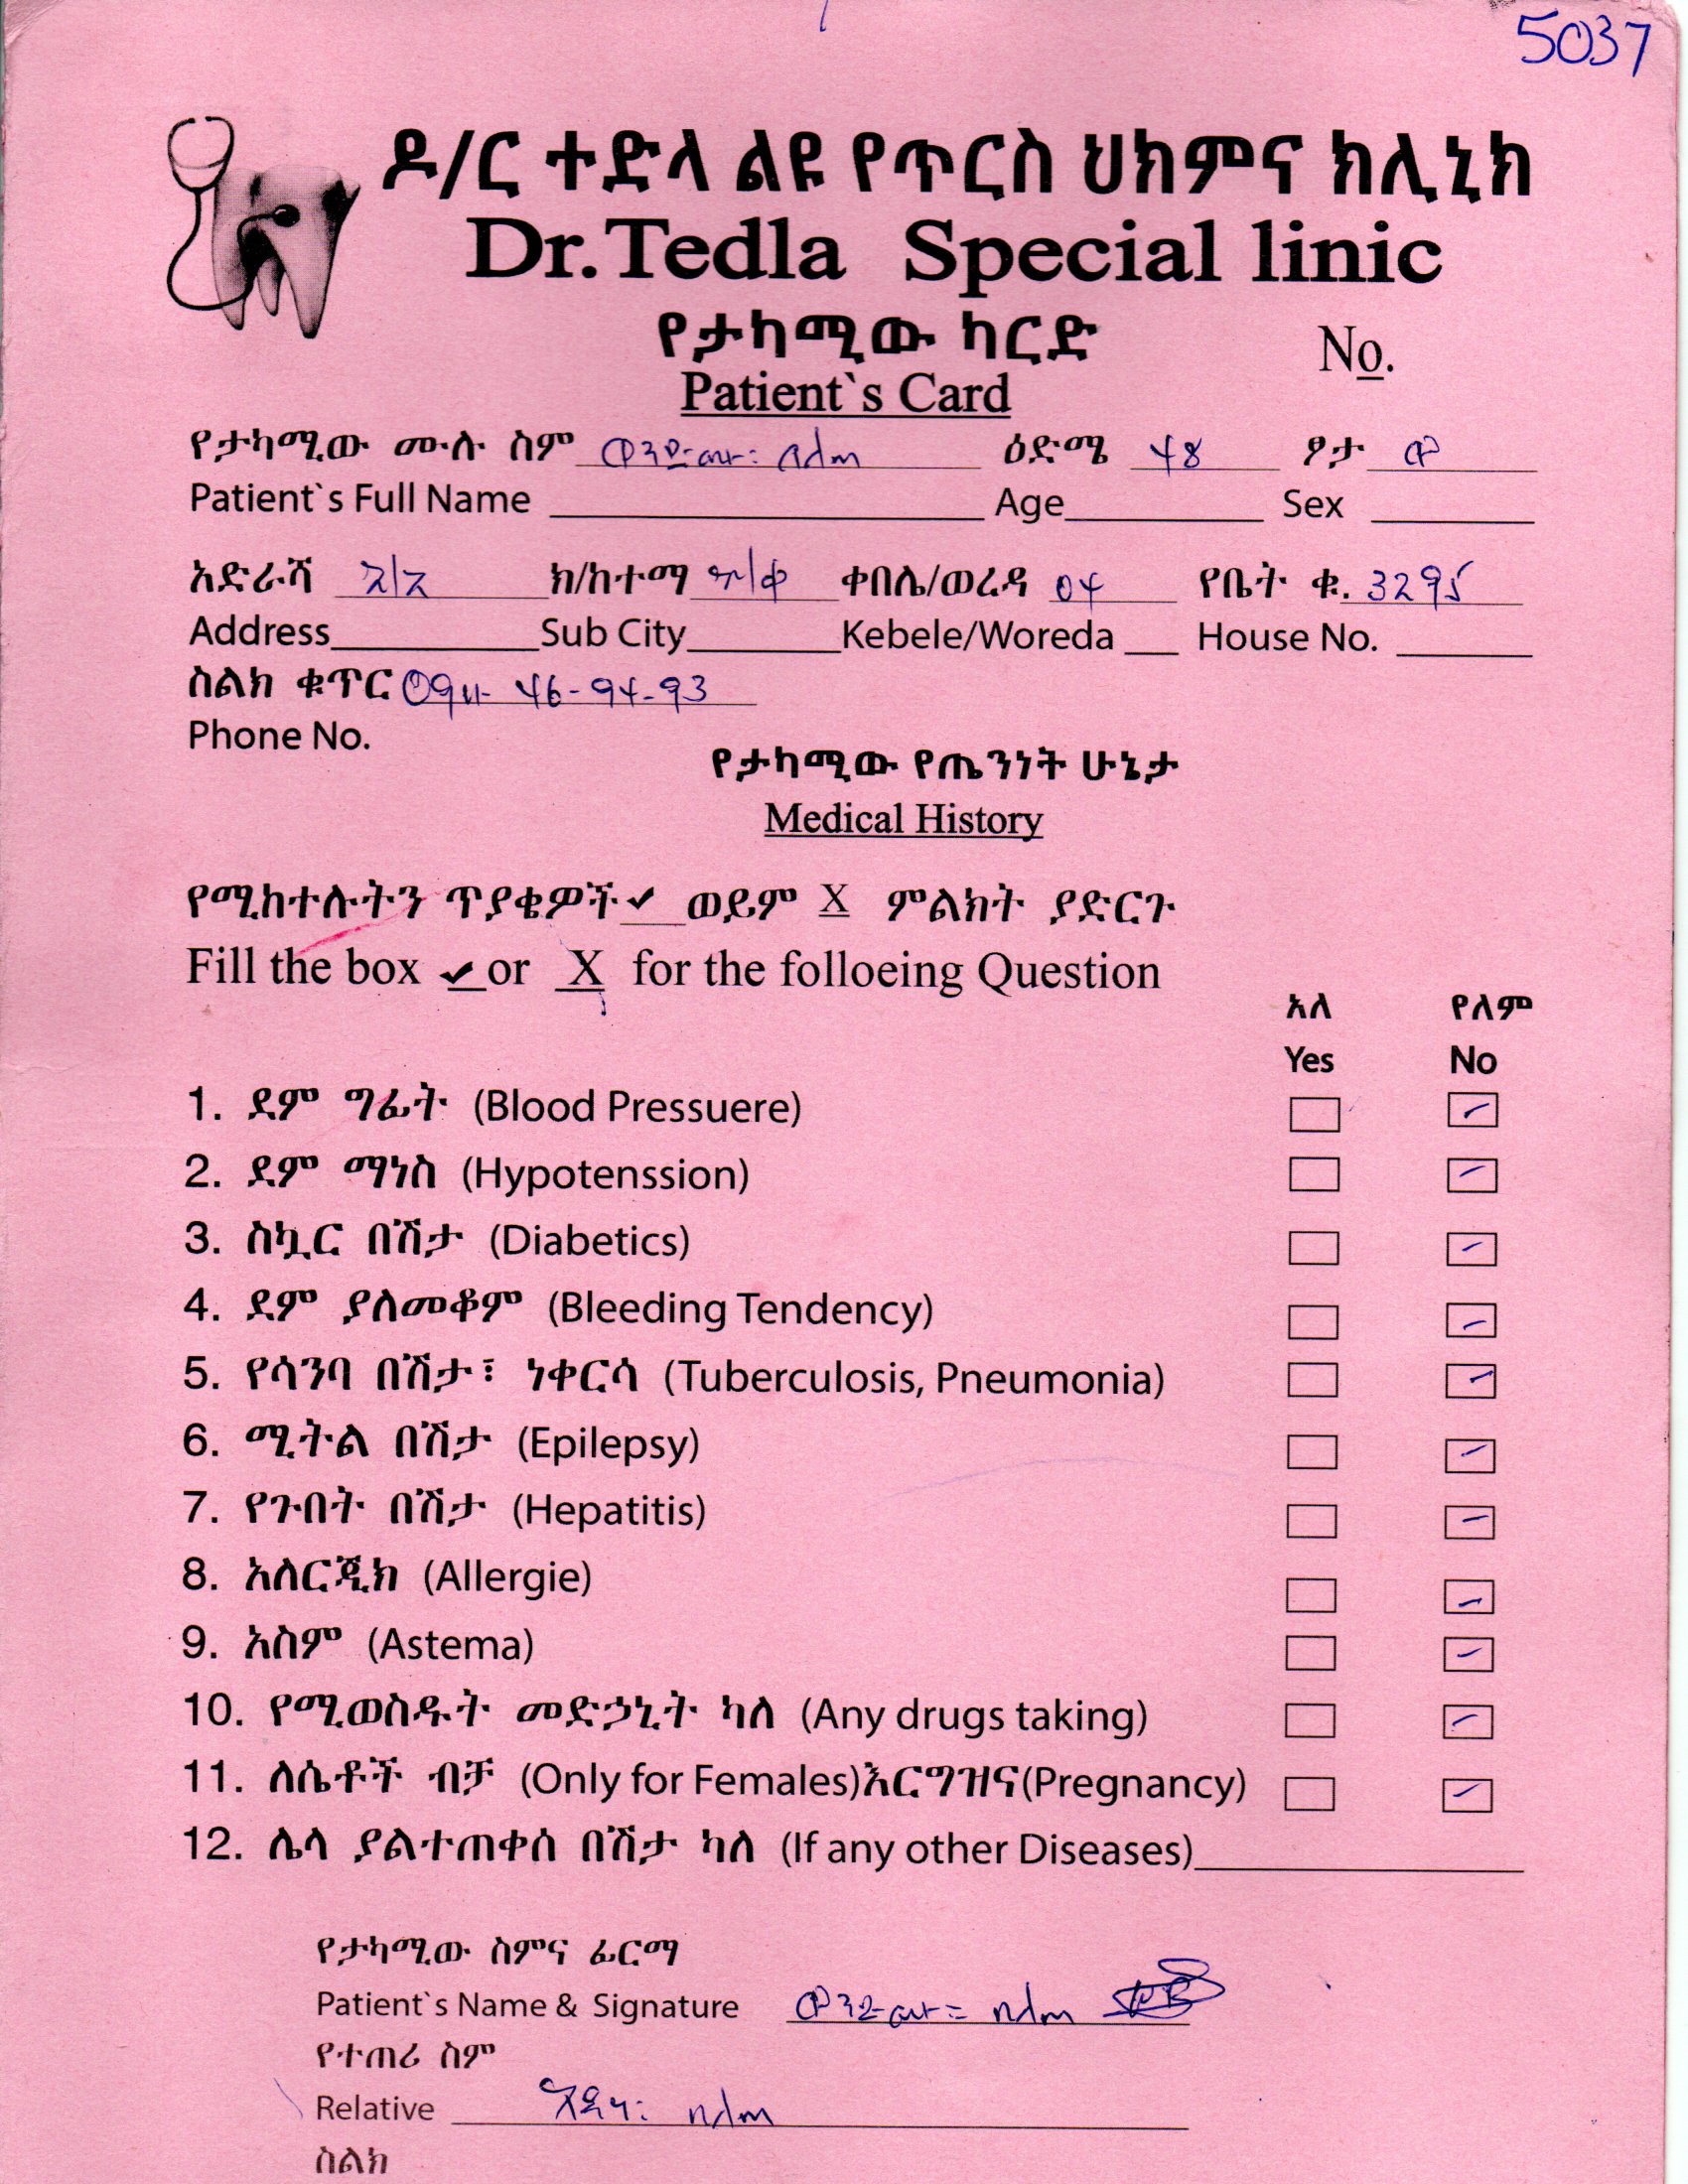 5037
ዶ/ር ተድላ ልዩ የጥርስ ህክምና ክሊኒክ
Dr.Tedla Special linic
የታካሚው ካርድ
No.
Patient`s Card
የታካሚው ሙሉ ስም ዕድሜ 48 ፆታ ወ
Patient`s Full Name Age Sex
አድራሻ ክ/ከተማ ቀበሌ/ወረዳ 04 የቤት ቁ. 3295
Address Sub City Kebele/Woreda House No.
ስልክ ቁጥር 0911-46-94-93
Phone No.
የታካሚው የጤንነት ሁኔታ
Medical History
የሚከተሉትን ጥያቄዎች ✔ ወይም X ምልክት ያድርጉ
Fill the box ✔ or X for the folloeing Question
አለ የለም
Yes No
1. ደም ግፊት (Blood Pressuere)
2. ደም ማነስ (Hypotenssion)
3. ስኳር በሽታ (Diabetics)
4. ደም ያለመቆም (Bleeding Tendency)
5. የሳንባ በሽታ፣ ነቀርሳ (Tuberculosis, Pneumonia)
6. ሚትል በሽታ (Epilepsy)
7. የጉበት በሽታ (Hepatitis)
8. አለርጂክ (Allergie)
9. አስም (Astema)
10. የሚወስዱት መድኃኒት ካለ (Any drugs taking)
11. ለሴቶች ብቻ (Only for Females)እርግዝና(Pregnancy)
12. ሌላ ያልተጠቀሰ በሽታ ካለ (If any other Diseases)
የታካሚው ስምና ፊርማ
Patient`s Name & Signature
የተጠሪ ስም
Relative
ስልክ